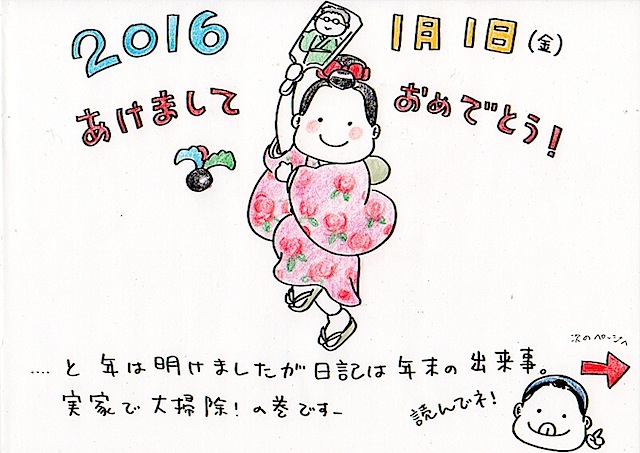 2016 1月1日(金)
あけまして おめでとう!
次のページへ
‥‥と 年は明けましたが日記は年末の出来事。
実家で大掃除!の巻です_
読んでネ!